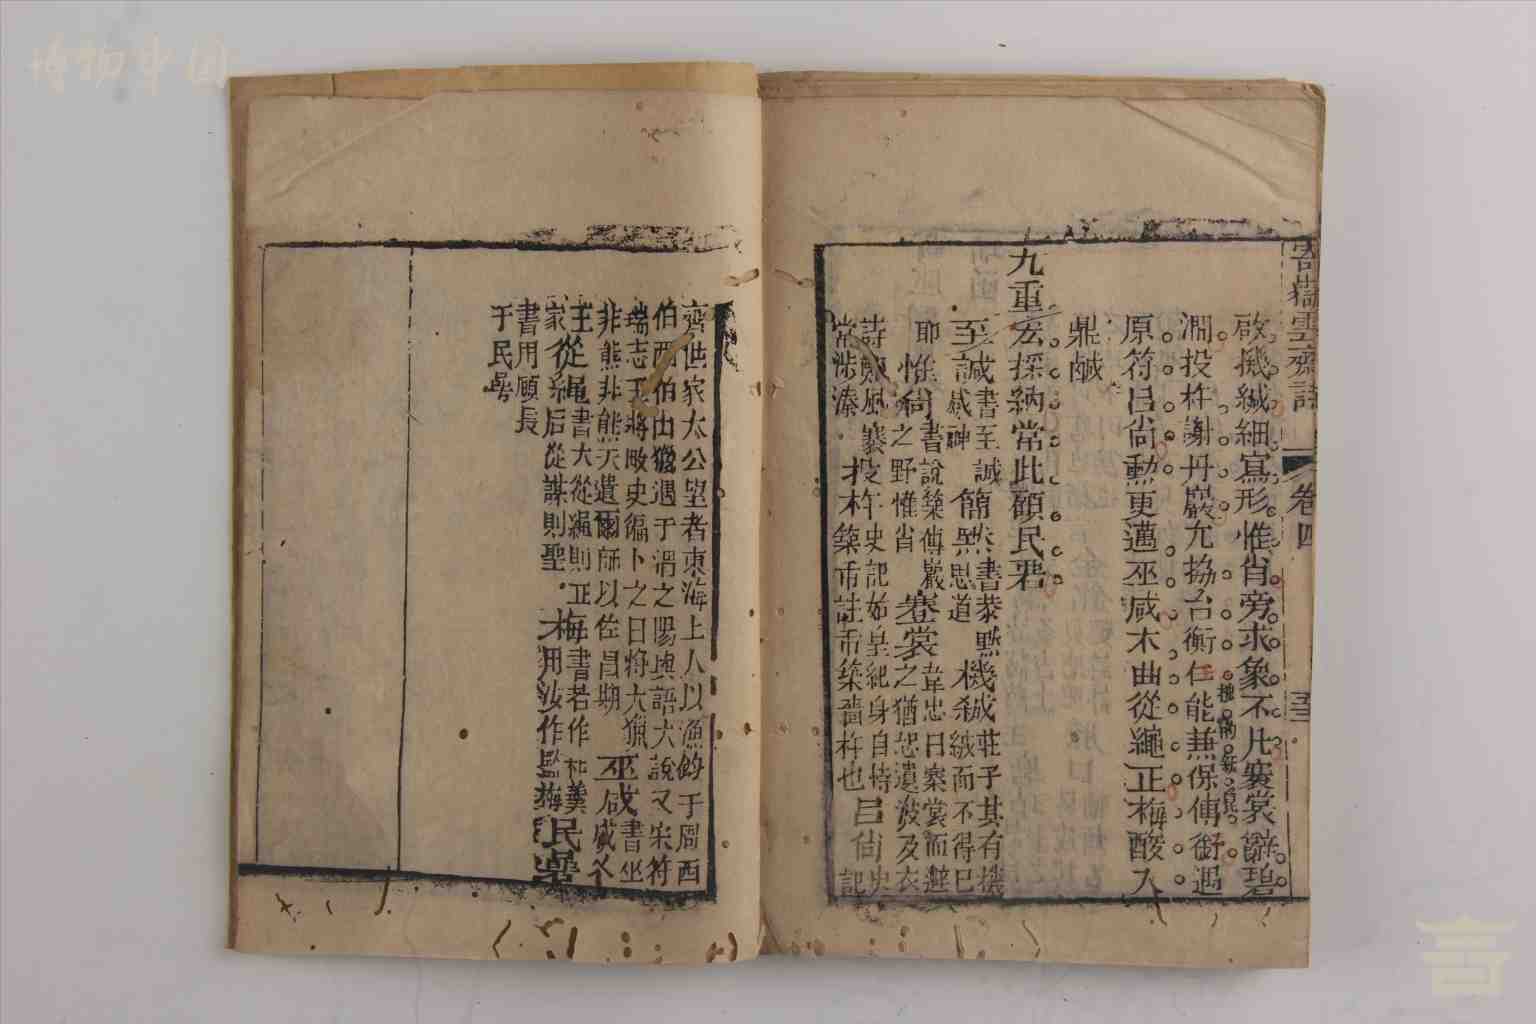 寄嶽雲齋試 卷四
啟機緘細寫形惟肖旁求象不凡褰裳辭碧
澗投杵謝丹巖允協台衡任能兼保傅銜遇
原符呂尚勲更邁巫咸木曲從繩正梅酸入
鼎鹹
九重宏採納常此顧民碞
至誠書至誠感神
簡默書恭默思道
機緘莊子其有機緘而不得已
耶
惟肖書說築傅巖之野惟肖
褰裳韋忠曰褰裳而避之猶恐遺波及衣
詩鄭風褰裳涉溱
投杵史記始皇紀身自持築臿註臿築牆杵也
呂尚史記
齊世家太公望者東海上人以漁釣于周西
伯西伯出獵遇于渭之陽與語大說又宋符
瑞志王將畋史徧卜之曰將大獵
非熊非羆天遺爾師以佐昌
巫咸書巫咸乂
王家
從繩書木從繩則正后從諫則聖
梅書若作和羹
用汝作鹽梅
民碞
書用顧畏
于民碞
博物中国